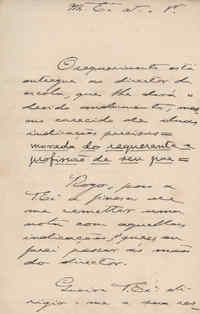 O requerimento está
entregue ao director da
escola, que lhe dará o
devido andamento, mas
em carecido de duas
indicações precisas =
morada do requerente e
profissão de seu pae =
Rogo, pois a
V. Exª a fineza de
me remetter uma
nota com aquellas
indicações, q
farei passar ás mãos
do director.
Queira V. Exª di
rigir-me a sua res